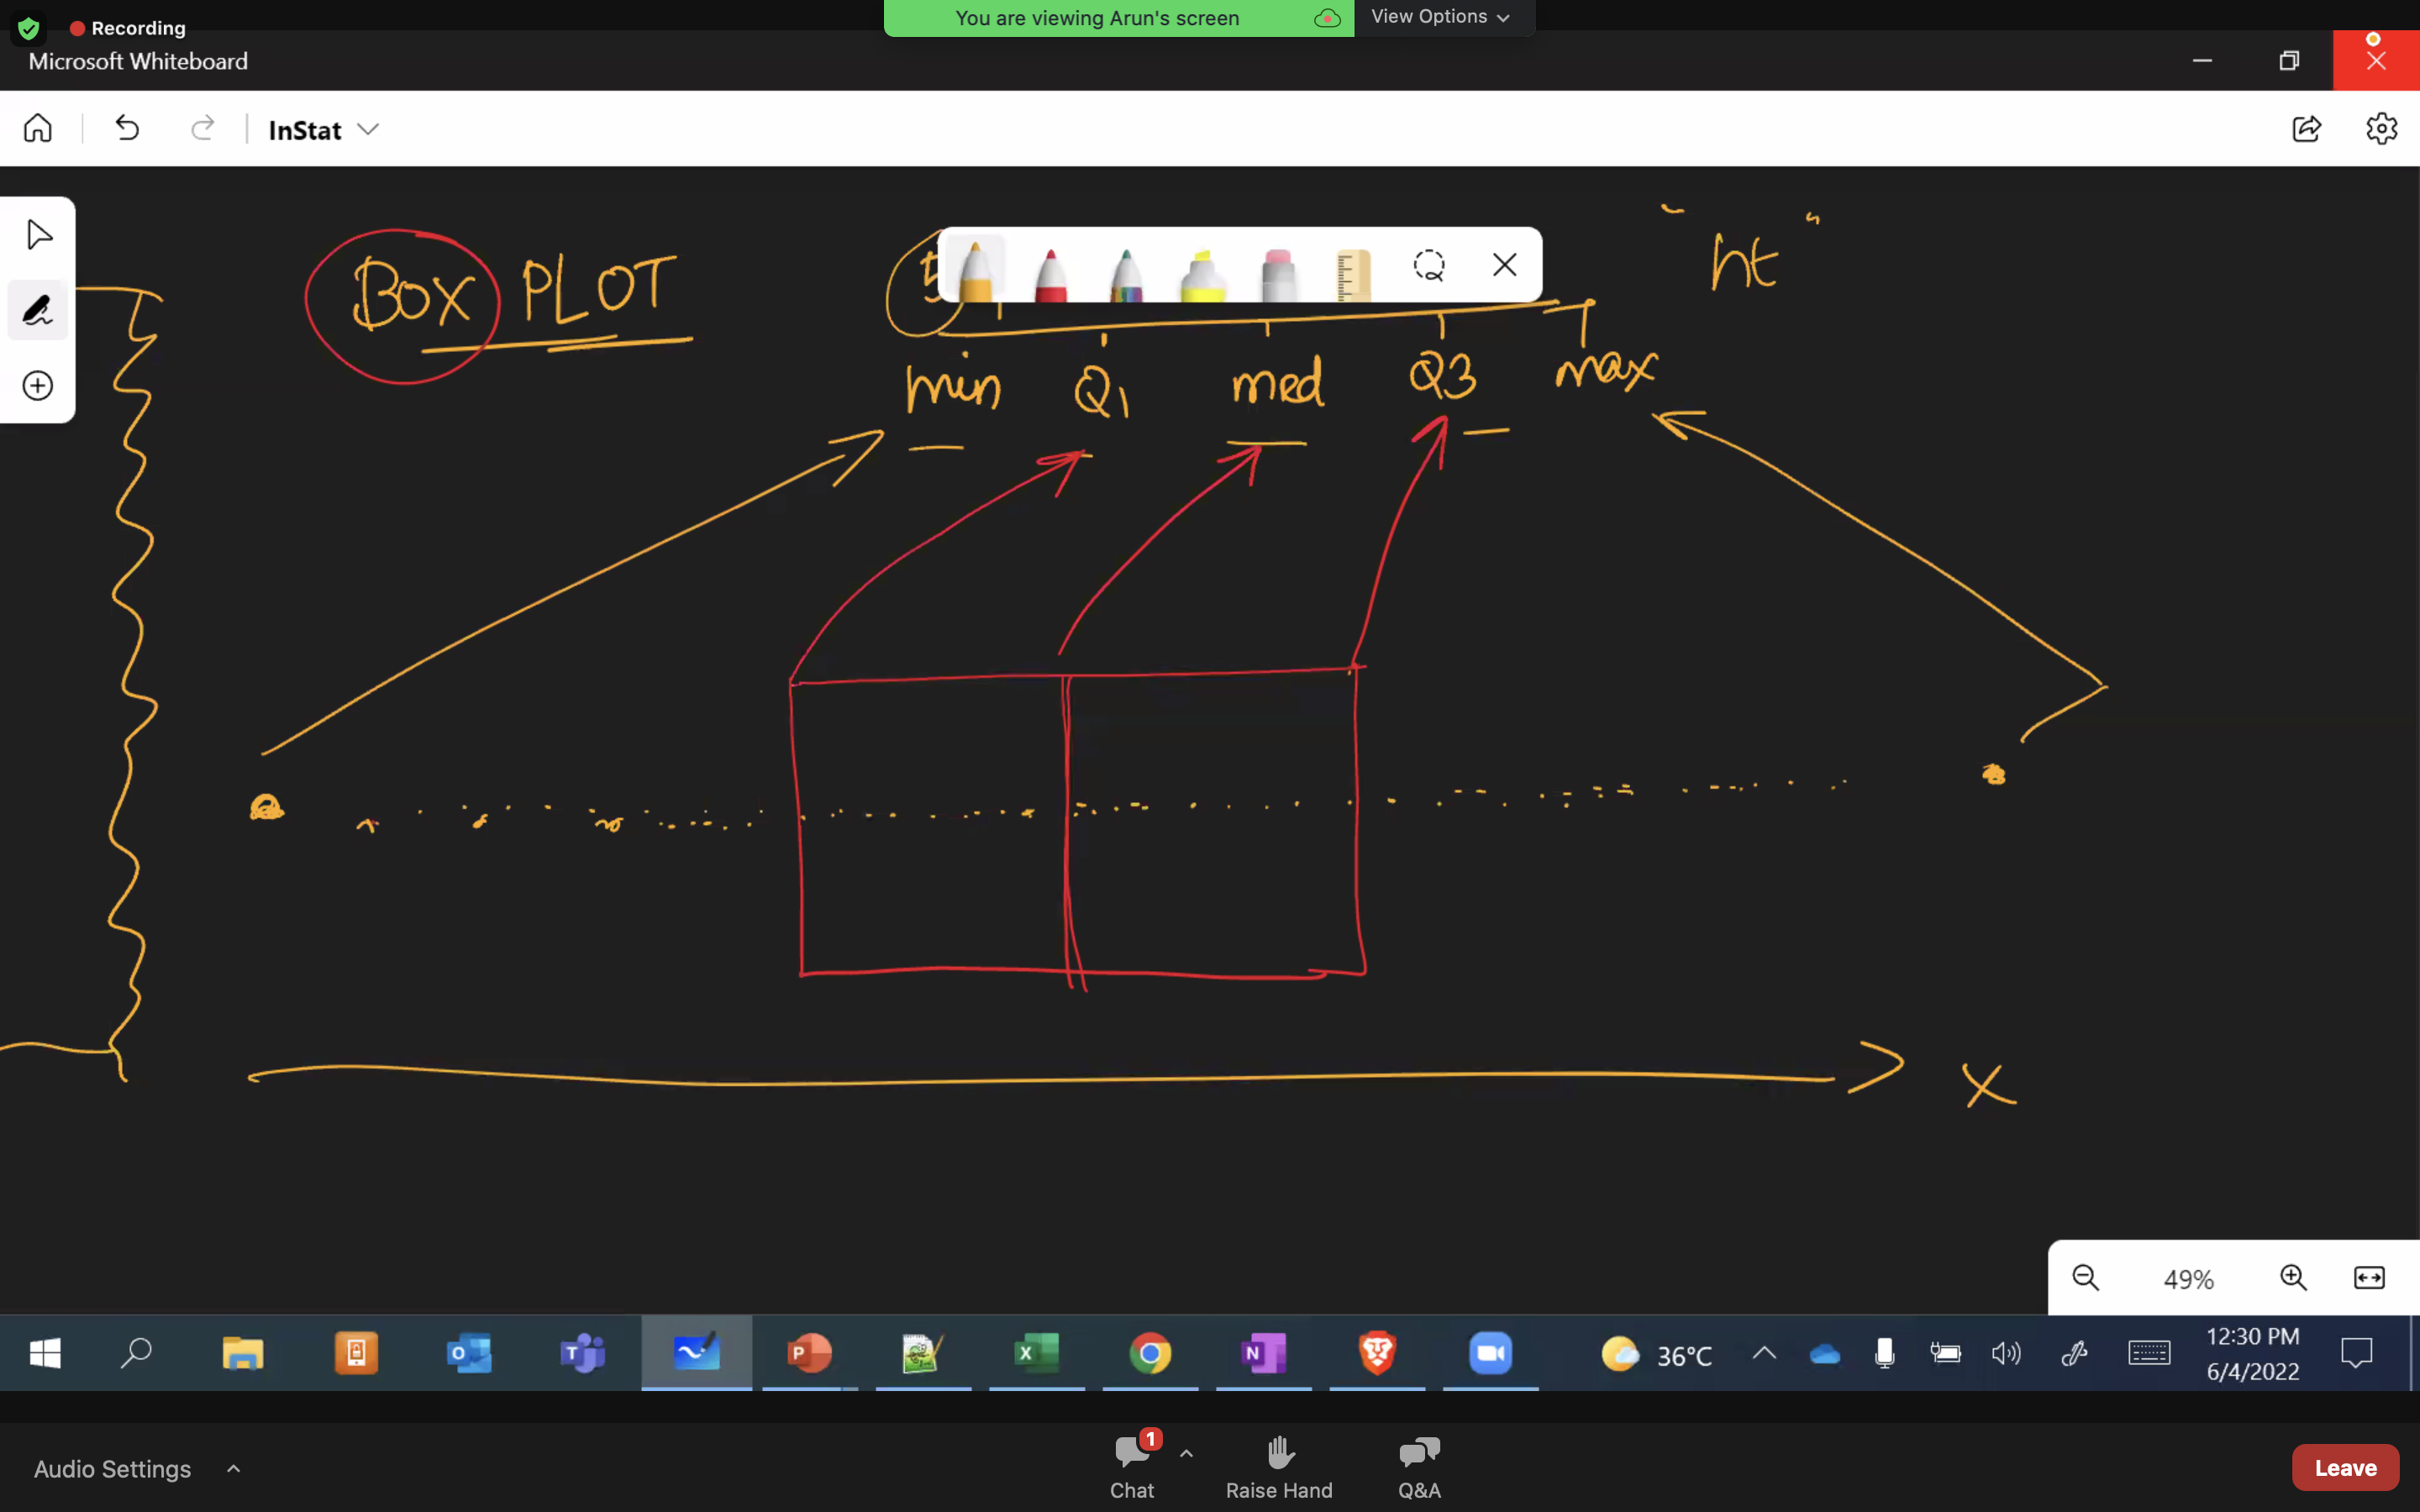 Recording
You are viewing Arun's screen
View Options
Microsoft Whiteboard
InStat
BOX PLOT
5
"ht"
min Q1 med Q3 max
X
49%
36°C
12:30 PM
6/4/2022
Audio Settings
1
Chat
Raise Hand
Q&A
Leave